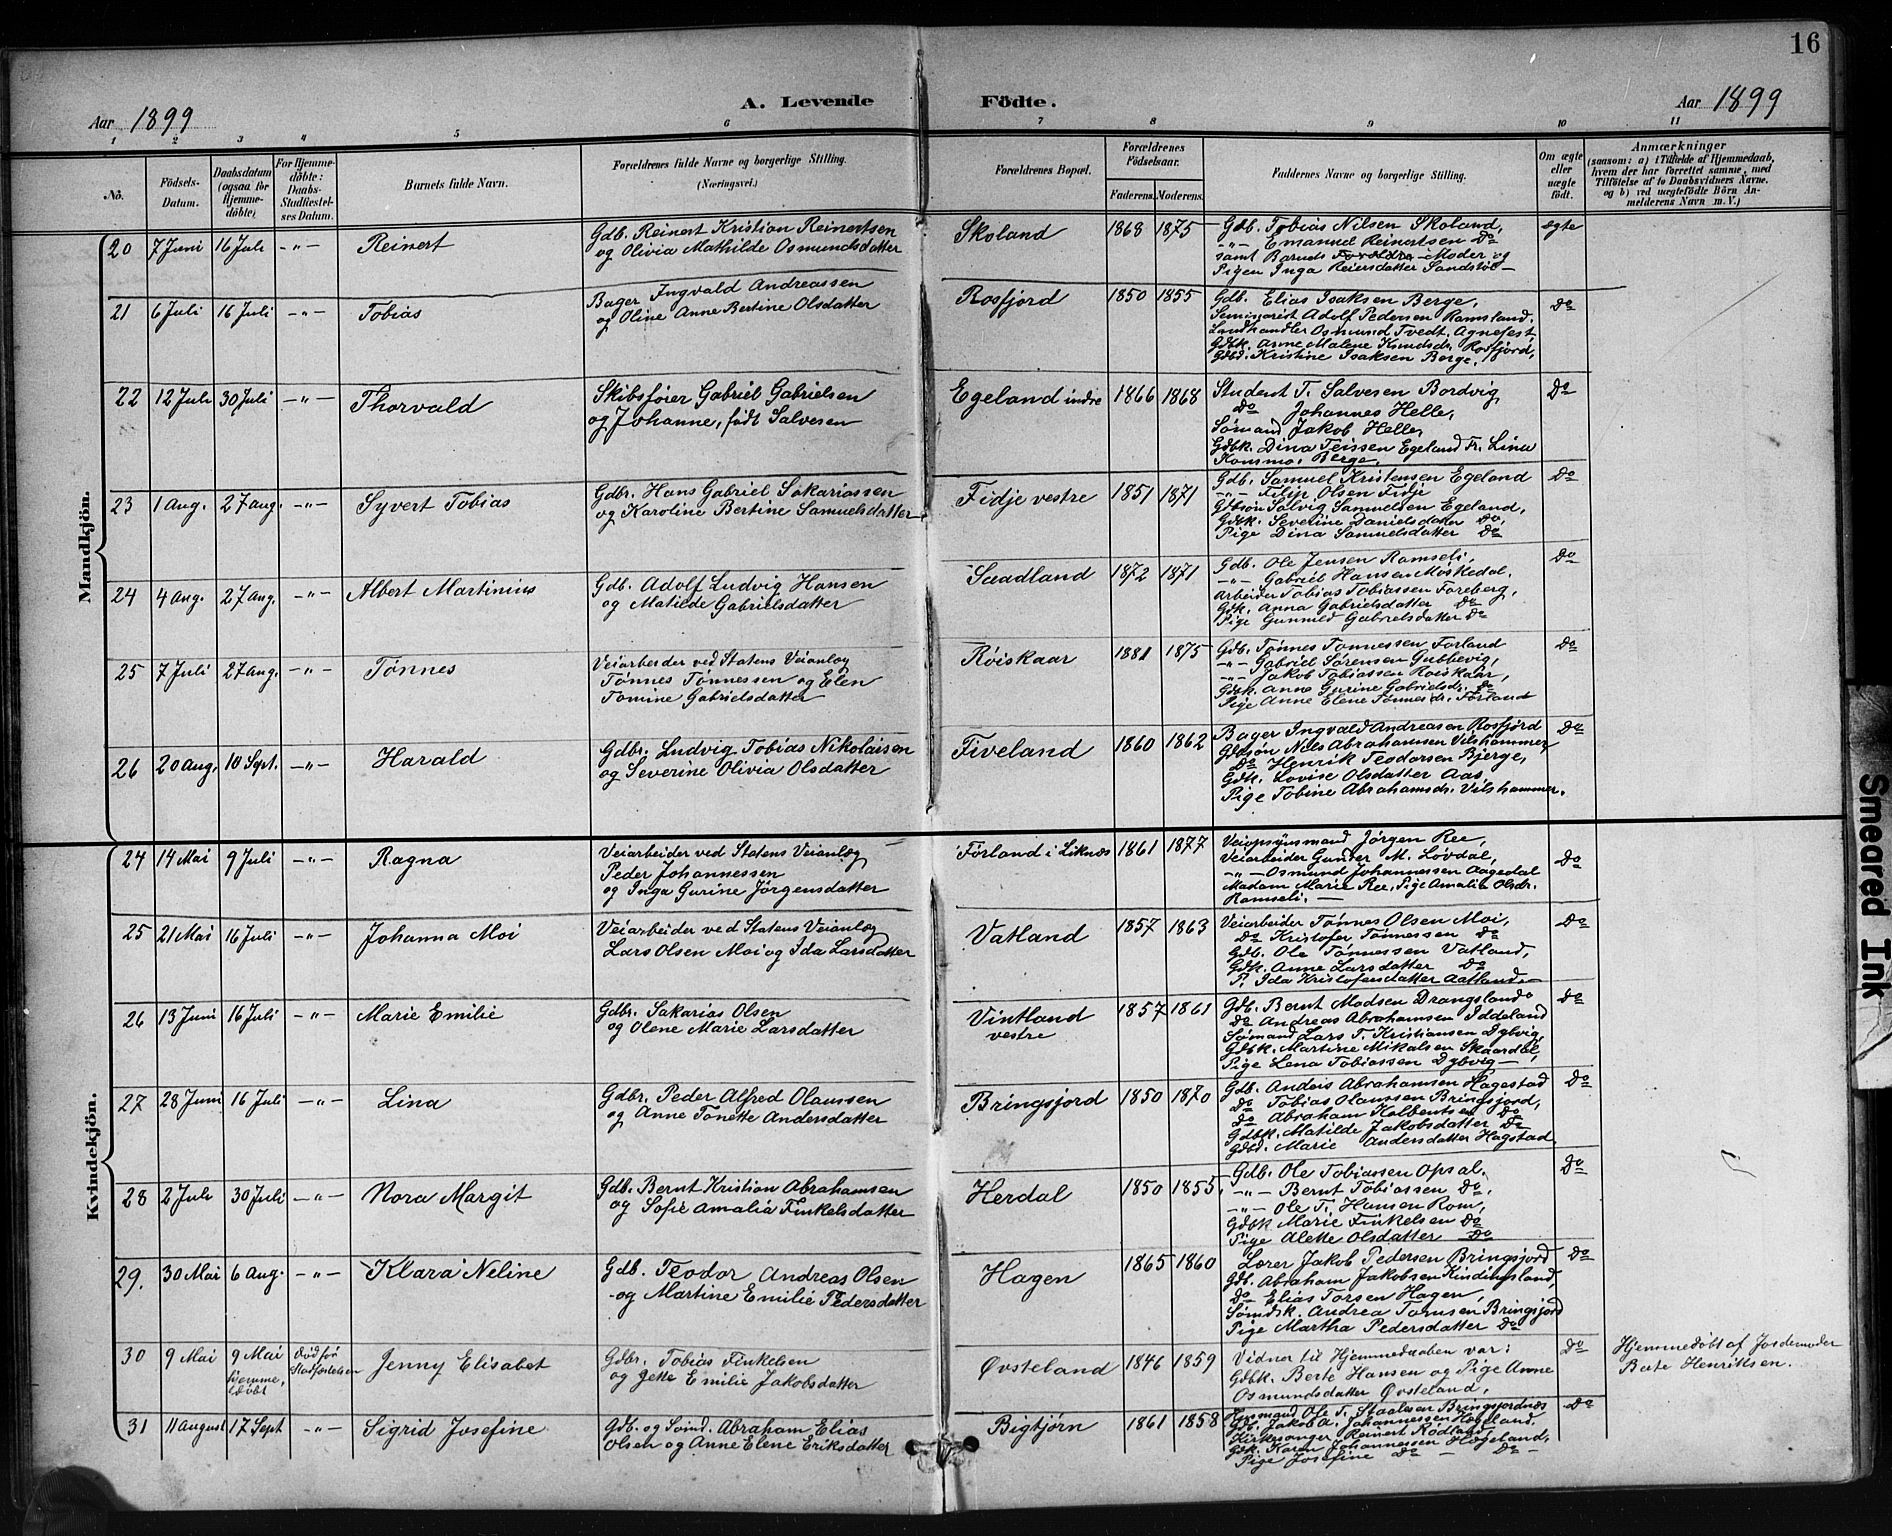 16
A. Levende Födte.
Aar 1899
Aar 1899
1 2 3 4 5 6 7 8 9 10 11
No.
Födsels-Datum.
Daabsdatum (ogsaa for Hjemme-döbte)
For Hjemme-döbte: Daabs-Stadfæstel-ses Datum.
Barnets fulde Navn.
Forældrenes fulde Navne og borgerlige Stilling.
(Næringsvei.)
Forældrenes Bopæl.
Forældrenes Födselsaar.
Faderens. Moderens.
Faddernes Navne og borgerlige Stilling.
Om ægte eller uægte födt.
Anmærkninger
(saasom: a) i Tilfælde af Hjemmedaab, hvem der har forrettet samme, med Tilföielse af to Daabsvidners Navne. og b) ved uægtefödte Börn An-melderens Navn m. V.)
Mandkjön.
20 7 Juni 16 Juli -"- Reinert
Gdb. Reinert Kristian Reinertsen
og Olivia Mathilde Osmundsdatter
Skoland 1868 1875
Gdb. Tobias Nilsen Skoland,
-"- Emanuel Reinertsen Do
samt Barnets Forældre-Moder og
Pigen Inga Reiersdatter Sandstöl-
ægte
21 6 Juli 16 Juli -"- Tobias
Bager Ingvald Andreassen
og Oline Anne Bertine Olsdatter
Rosfjord 1850 1855
Gdb. Elias Isaksen Berge,
Seminarist Adolf Pedersen Ramsland
Landhandler Osmund Tvedt, Agnefest
Gdbk. Anne Malene Knudsdr. Rosfjord,
Gdbd. Kristine Isaksen Berge.
Do
22 12 Juli 30 Juli -"- Thorvald
Skibsförer Gabriel Gabrielsen
og Johanne, født Salvesen
Egeland indre 1866 1868
Student T. Salvesen Bordvig
Do Johannes Helle,
Sømand Jakob Helle,
Gdbk. Dina Teissen Egeland Fr. Lina
Berge.
Do
23 1 Aug. 27 Aug. -"- Syvert Tobias
Gdbr. Hans Gabriel Sakariassen
og Karoline Bertine Samuelsdatter
Fidje vestre 1851 1871
Gdb. Samuel Kristensen Egeland
-"- Filip Olsen Fidje
Gdbsøn Salvig Samuelsen Egeland,
Gdbk. Severine Danielsdatter Do,
Pige Dina Samuelsdatter Do
Do
24 4 Aug. 27 Aug. -"- Albert Martinius
Gdb. Adolf Ludvig Hansen
og Matilde Gabrielsdatter
Saadland 1872 1871
Gdb. Ole Jensen Ramseli,
-"- Gabriel Hansen Møskedal,
Arbeider Tobias Tobiassen Foreberg,
Gdk. Anna Gabrielsdatter Do
Pige Gunnild Gabrielsdatter Do
Do
25 7 Juli 27 Aug. -"- Tønnes
Veiarbeider ved Statens Veianlæg
Tønnes Tønnessen og Elen
Tomine Gabrielsdatter
Røiskaar 1881 1875
Gdb. Tønnes Tønnessen Forland
-"- Gabriel Sørensen Gubbevig,
-"- Jakob Tobiassen Roiskaar,
Gdbk. Anne Gurine Gabrielsdr. Do
Pige Anne Elene Tønnesdr. Forland
Do
26 20 Aug. 10 Sept. -"- Harald
Gdbr. Ludvig Tobias Nikolaisen
og Severine Olivia Olsdatter
Fiveland 1860 1862
Bager Ingvald Andreasen Rosfjord
Gdbsøn Nils Abrahamsen Vilshammer,
Do Henrik Teodorsen Bjerge,
Gdk. Lovise Olsdatter Aas,
Pige Tobine Abrahamsdr. Vilshammer.
Do
Kvindekjön.
24 14 Mai 9 Juli -"- Ragna
Veiarbeider ved Statens Veianlæg
Peder Johannessen
og Inga Gurine Jørgensdatter
Førland i Liknæs 1861 1877
Veiopsynsmand Jørgen Ree,
Veiarbeider Gunder M. Løvdal,
-"- Osmund Johannessen Aagedal
Madam Marie Ree, Pige Amalie Olsdr.
Ramseli.-
Do
25 21 Mai 16 Juli -"- Johanna Moi
Veiarbeider ved Statens Veianlæg
Lars Olsen Moi og Ida Larsdatter
Vatland 1857 1863
Veiarbeider Tønnes Olsen Moi,
Do Kristofer Tønnessen Do
Gdb. Ole Tønnessen Vatland,
Gdk. Anne Larsdatter Do
P. Ida Kristofersdatter Aatland.-
Do
26 13 Juni 16 Juli -"- Marie Emilie
Gdbr. Sakarias Olsen
og Olene Marie Larsdatter
Vintland vestre 1857 1861
Gdb. Bernt Madsen Drangsland
Do Andreas Abrahamsen Iddeland
Sømand Lars T. Kristiansen Dybvig,
Gdbk. Martine Mikalsen Skaardal,
Pige Lena Tobiassen Dybvig-
Do
27 28 Juni 16 Juli -"- Lina
Gdbr. Peder Alfred Olaussen
og Anne Tonette Andersdatter
Bringsjord 1850 1870
Gdb. Anders Abrahamsen Hagestad
Do Tobias Olaussen Bringsjord,
Do Abraham Kolbentsen Do
Gdbk. Matilde Jakobsdatter Do
Gdbd. Marie Andersdatter Hagstad
Do
28 2 Juli 30 Juli -"- Nora Margit
Gdb. Bernt Kristian Abrahamsen
og Sofie Amalia Finkelsdatter
Herdal 1850 1855
Gdb. Ole Tobiassen Opsal,
-"- Bernt Tobiassen Do,
-"- Ole T. Hansen Rom,
Gdbk Marie Finkelsen Do
Pige Alette Olsdatter Do
Do
29. 30 Mai 6 Aug. -"- Klara Neline
Gdb. Teodor Andreas Olsen
og Martine Emilie Pedersdatter
Hagen 1865 1860
Lærer Jakob Pedersen Bringsjord
Gdb. Abraham Jakobsen Kindingsland,
Do Elias Torsen Hagen,
Sømdsk. Andrea Tomsen Bringsjord
Pige Martha Pedersdatter Do
Do
30 9 Mai 9 Mai hjemme-døbt død før Stadfæstelsen Jenny Elisabet
Gdbr. Tobias Finkelsen
og Jette Emilie Jakobsdatter
Øvsteland 1846 1859
Vidner til Hjemmedaaben var:
Gdbk. Berte Hansen og Pige Anne
Osmundsdatter Øvsteland.
Do
Hjemmedøbt af Jordemoder
Berte Henriksen.
31 11 August 17 Sept -"- Sigrid Josefine
Gdb. og Sømd. Abraham Elias
Olsen og Anne Elene Eriksdatter
Bigtjørn 1861 1858
Husmand Ole T. Staalesen Bringsjordnes
Gdb. Jakob A. Johannessen Høgeland,
Kirkesanger Reinert Rødland,
Gdk. Karen Johannessen Høgeland,
Pige Josefine Do - Do-
Do
Smeared Ink